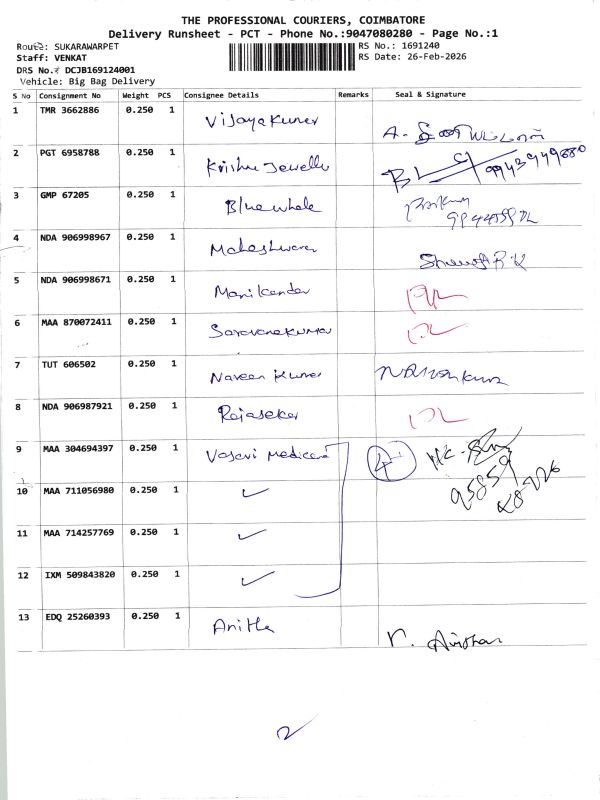 THE PROFESSIONAL COURIERS, COIMBATORE
Delivery Runsheet - PCT - Phone No.:9047080280 - Page No.:1
Route: SUKARAWARPET
RS No.: 1691240
Staff: VENKAT
RS Date: 26-Feb-2026
DRS No.: DCJB169124001
Vehicle: Big Bag Delivery
S No Consignment No Weight PCS Consignee Details Remarks Seal & Signature
1 TMR 3662886 0.250 1 Vijayakumar
2 PGT 6958788 0.250 1 Krishna Jewells
3 GMP 67205 0.250 1 Bluewhale
4 NDA 906998967 0.250 1 Maheshwaran
5 NDA 906998671 0.250 1 Manikandan
6 MAA 870072411 0.250 1 Saravanakumar
7 TUT 606502 0.250 1 Naveen Kumar
8 NDA 906987921 0.250 1 Rajasekar
9 MAA 304694397 0.250 1 Vasavi Medicare 4
10 MAA 711056980 0.250 1 ✓
11 MAA 714257769 0.250 1 ✓
12 IXM 509843820 0.250 1 ✓
13 EDQ 25260393 0.250 1 Anitha
2